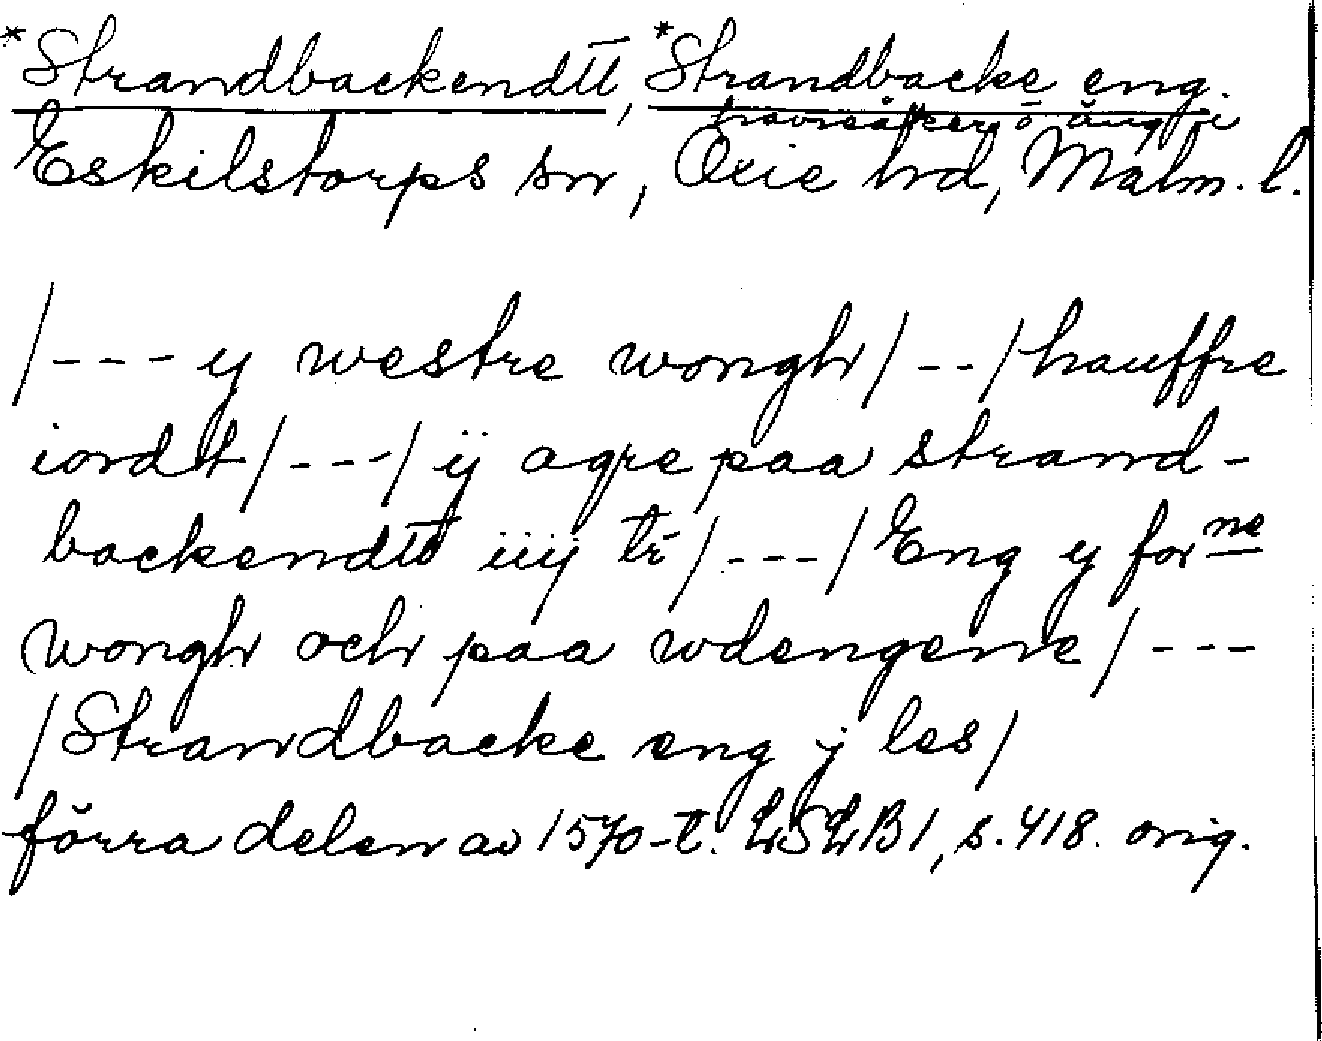 *Strandbackendtt, *Strandbacke eng.
havreåker o äng i
Eskilstorps sn, Oxie hd, Malm. l.
/--- y westre wongh/--/hauffre
iordt/---/ ij agre paa strand-
backendtt iiij tr/---/Eng y forne
wongh och paa wdengene/---
/Strandbacke eng j les/
förra delen av 1570-t. LSLB1, s. 418. orig.